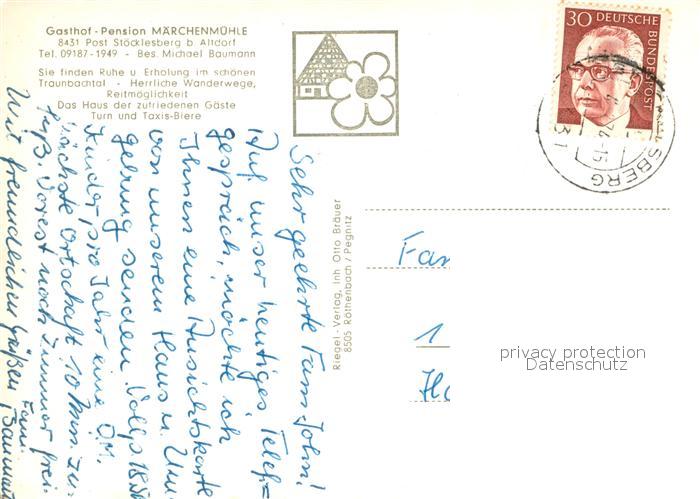 Gasthof - Pension MÄRCHENMÜHLE
8431 Post Stöcklesberg b. Altdorf
Tel. 09187 - 1949 - Bes. Michael Baumann
Sie finden Ruhe u. Erholung im schönen
Traunbachtal - Herrliche Wanderwege,
Reitmöglichkeit
Das Haus der zufriedenen Gäste
Turn und Taxis-Biere
30 DEUTSCHE
BUNDESPOST
SBERG
Riegel - Verlag, Inh Otto Bräuer
8505 Röthenbach / Pegnitz
Sehr geehrte Fam. John!
Auf unser heutiges Telef=
gespräch, möchte ich
Ihnen eine Ansichtskarte
von unserem Haus u. Um=
gebung senden. Vollp. 18.50
Kinder pro Jahr eine D.M.
nächste Ortschaft 10 Min. zu
Fuß. Vorerst noch Zimmer frei.
Mit freundlichen Grüßen Fam.
Baumann
Fam
1
privacy protection
Datenschutz